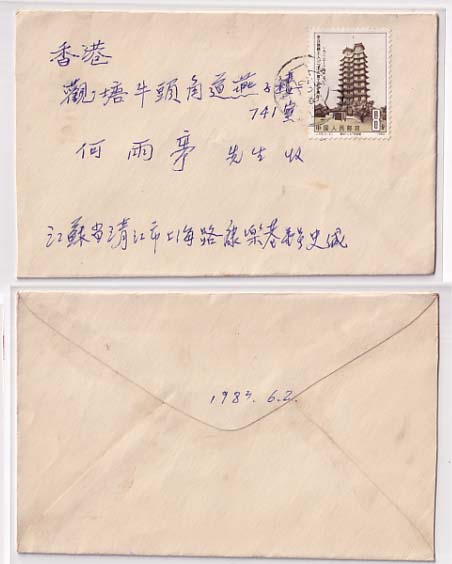 香港
觀塘牛頭角道燕子樓
741室
何雨亭 先生收
江蘇省清江市上海路康樂巷 史成
中国人民邮政
8
1983. 6.2.